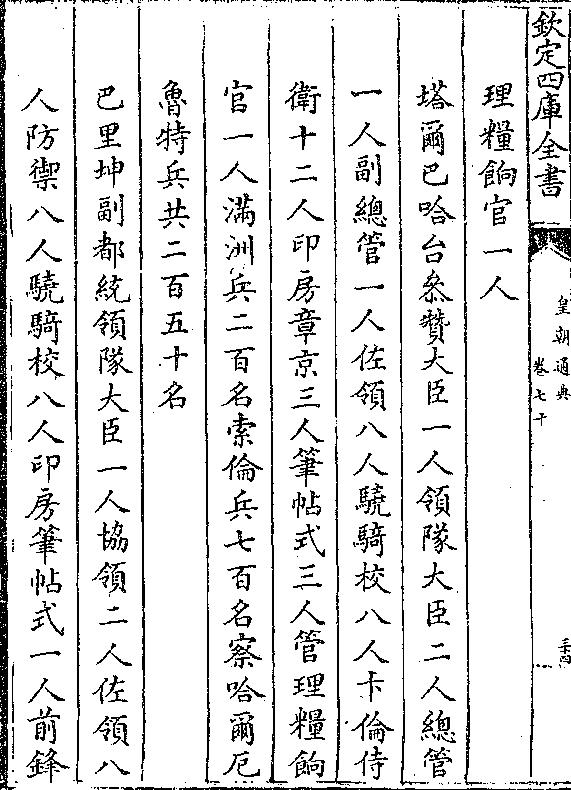 欽定四庫全書
皇朝通典
卷七十
三十四
理糧餉官一人
塔爾巴哈台叅贊大臣一人領隊大臣二人總管
一人副總管一人佐領八人驍騎校八人卡倫侍
衛十二人印房章京三人筆帖式三人管理糧餉
官一人滿洲兵二百名索倫兵七百名察哈爾厄
魯特兵共二百五十名
巴里坤副都統領隊大臣一人協領二人佐領八
人防禦八人驍騎校八人印房筆帖式一人前鋒